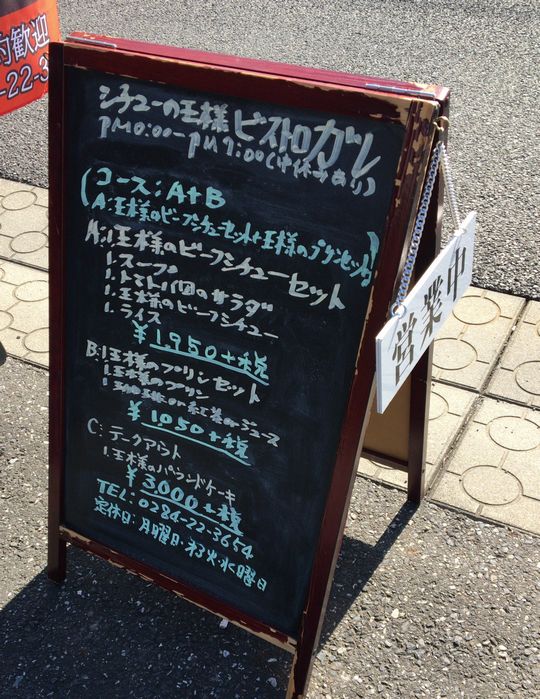 約歓迎
-22-3
シチューの王様ビストロガレ
PM0:00-PM7:00(中休みあり)
コース:A+B
(A:王様のビーフシチューセット+王様のプリンセット)
A:王様のビーフシチューセット
1.スープ
1.トマトバロのサラダ
1.王様のビーフシチュー
1.ライス
¥1,950+税
B:王様のプリンセット
1.王様のプリン
1.珈琲or紅茶orジュース
¥1,050+税
C:テークアウト
1.王様のパウンドケーキ
¥3,000+税
TEL:0284-22-3654
定休日:月曜日・第3火・水曜日
営業中